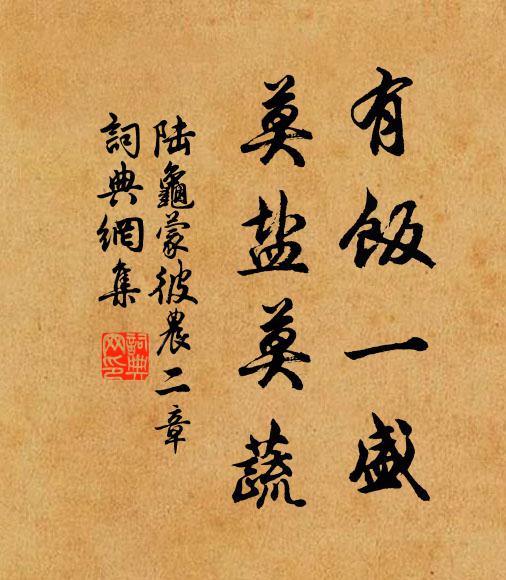 有饭一盛
莫盐莫蔬
陆龜蒙彼農二章
詞典網集
詞典网印